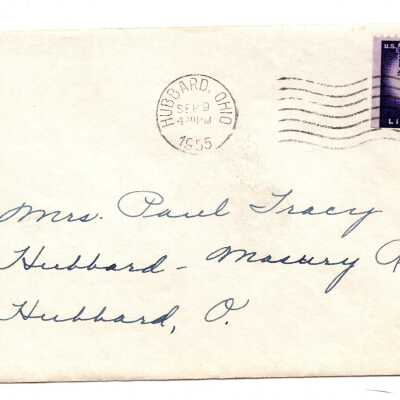 HUBBARD, OHIO
SEP 9
1955
U.S.
LI
Mrs. Paul Tracy
Hubbard - Masury R
Hubbard, O.